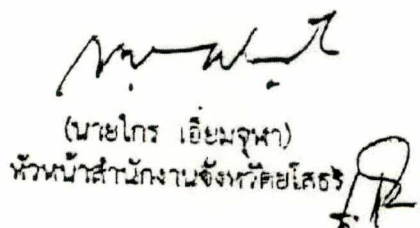 (นายไกร เอี่ยมจุฬา)
หัวหน้าสำนักงานจังหวัดยโสธร